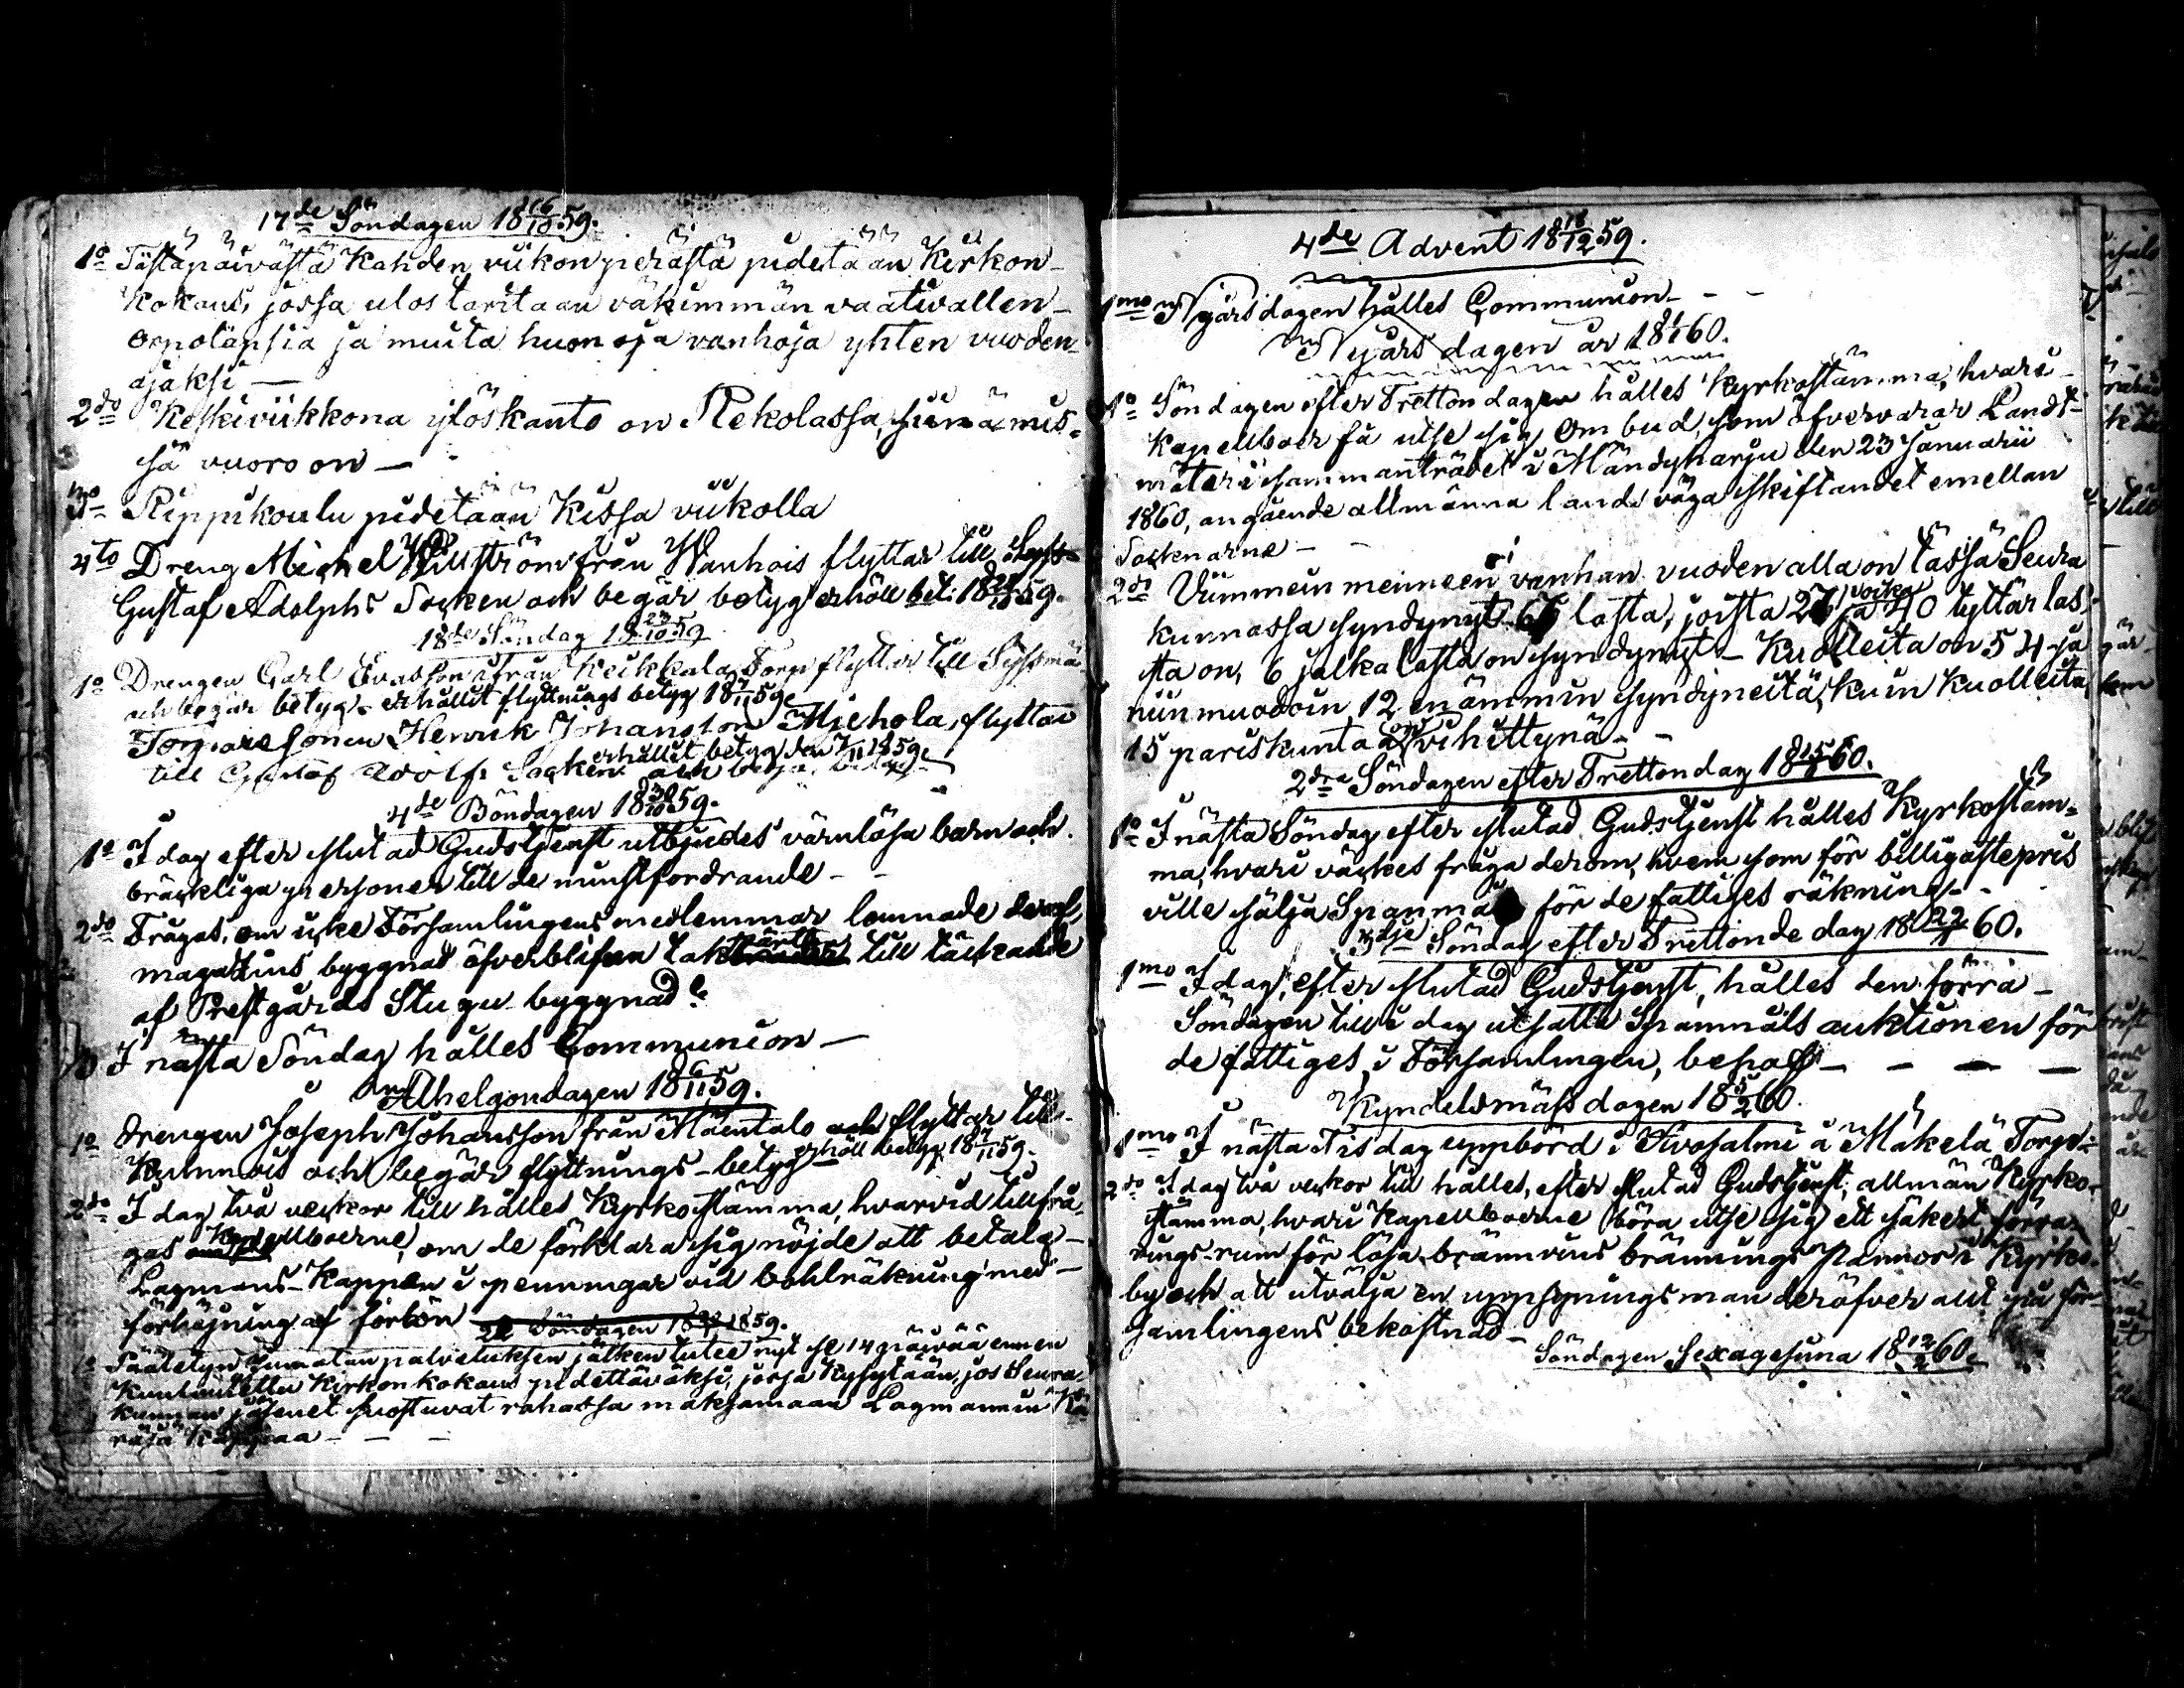 17de Söndagen 18 16/10 59.
1o Tästäpäivästä Kahden viikon perästä pidetään Kirkon-
Kokous, jossa ulos taritaan väkimmän vaativallen-
orpolapsia ja muita huonoja vanhoja yhten vuoden-
ajaksi —
2do Keskiviikkona ylöskanto on Rekolassa, siinä mis-
sä vuoro on —
3o Rippikoulu pidetään Kissa viikolla
4to Dreng Michel från Wanhois flyttar till
Gustaf Adolphs Socken och begär betyg erhöll bet. 18 59.
18de Söndag 18 23/10 59
1o Drengen Carl Evasson från Keikkala Torp flyttar till Syssmä
och begär betyg. erhållit flyttnings betyg 18 59.
Torparesonen Henrik Johansson Mjehola, flyttar
erhållit betyg den 7/11 1859.
till Gustaf Adolfs Socken och begär betyg
4de Böndagen 18 30/10 59.
1o I dag efter slutad Gudstjenst utbjudes värnlösa barn och
bräckliga personer till de minstfordrande —
2do Frågas, om icke Församlingens medlemmar lemnade deraf,
magazins byggnad öfverblifna tak till täckande
af Prestgårds Stugu byggnad?
3o I nästa Söndag hålles Communion —
Alhelgondagen 18 6/11 59.
1o drengen Joseph Johansson från Mäentalo och flyttar till
Kuhmois och begär flyttnings-betyg erhöll betyg 18 59.
2do I dag två veckor till hålles Kyrkostämma, hvarvid tillfrå-
gas Kapellboerne, om de förklara sig nöjde att betala-
Lagmans-Kappan i penningar vid bohlräkning med —
förhöjning af förlön
22 Söndagen 1859.
1o Säätetyn Jumalan palveluksen jälken tulee nyt se 14 päivää ennen
Kuulutettu Kirkon kokous pidettäväksi, jossa Kysytään, jos Seura-
kunnan jäsenet suostuvat rahassa maksamaan Lagmannin Kä-
räjä Kappaa —
4de Advent 18 18/12 59.
1mo Nyårsdagen hålles Communion —
Nyårsdagen år 18 1/1 60.
1o Söndagen efter Trettondagen hålles Kyrkostämma, hvari
Kapellboer få utse sig Ombud, som öfvervarar Landt-
mäteri sammanträdet i Mändyharju den 23 Januarii
1860, angående allmänna landsväga skiftandet emellan
Socknarne —
2do Viimmein menneen vanhan vuoden alla on tässä Seura
kunnassa syndynyt 67 lasta, joista 27 poika ja 40 tyttärlas-
ta on, 6 jalkalasta on syndynyt — Kuolleita on 54 ja
niin muodoin 12 enämmin syndyneitä, kuin Kuolleita
15 pariskuntaa on vihittynä —
2dra Söndagen efter Trettondag 18 15/1 60.
1o I nästa Söndag efter slutad Gudstjenst hålles Kyrkostäm-
ma, hvari väckes fråga derom, hvem som för billigaste pris
ville sälja Spanmål för de fattiges räkning —
3dje Söndag efter Trettonde dag 18 22/1 60.
1mo I dag, efter slutad Gudstjenst, hålles den förra —
Söndagen till i dag utsatta Spanmåls auktionen för
de fattiges i Församlingen, behof — — —
Kyndelsmässdagen 18 5/2 60.
1mo I nästa Tisdag uppbörd i Hirvosalmi å Mäkelä Torp —
2do I dag två veckor till hålles, efter slutad Gudstjenst, allmän Kyrko-
stämma, hvari Kapellboerne böra utse sig ett säkert förva-
rings-rum för lösa brännvins brännings pannor i Kyrko-
by och att utvälja en uppsyningsman deröfver allt på För-
samlingens bekostnad —
Söndagen Sexagesima 18 12/2 60.